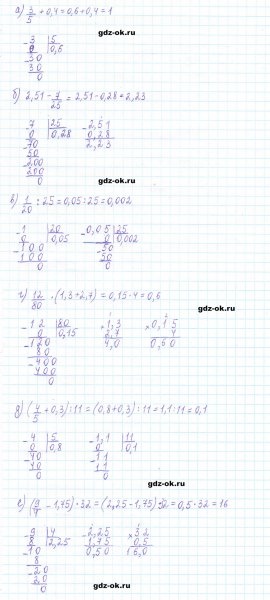 а) 3/5 + 0,4 = 0,6 + 0,4 = 1
gdz-ok.ru
- 3 | 5
0 | 0,6
- 30
30
0
gdz-ok.ru
б) 2,51 - 7/25 = 2,51 - 0,28 = 2,23
- 7 | 25 - 2,51
0 | 0,28 0,28
- 70 2,23
50
- 200
200
0
gdz-ok.ru
в) 1/20 : 25 = 0,05 : 25 = 0,002
- 1 | 20 - 0,05 | 25
0 | 0,05 0 | 0,002
- 100 - 50
100 50
0 0
gdz-ok.ru
г) 12/80 · (1,3 + 2,7) = 0,15 · 4 = 0,6
gdz-ok.ru
- 12 | 80 + 1,3 × 0,15
0 | 0,15 2,7 4
- 120 4,0 0,60
80
- 400
400
0
gdz-ok.ru
д) (4/5 + 0,3) : 11 = (0,8 + 0,3) : 11 = 1,1 : 11 = 0,1
- 4 | 5 - 1,1 | 11
0 | 0,8 0 | 0,1
- 40 - 11
40 11
0 0
gdz-ok.ru
е) (9/4 - 1,75) · 32 = (2,25 - 1,75) · 32 = 0,5 · 32 = 16
- 9 | 4 - 2,25 × 32
8 | 2,25 1,75 0,5
- 10 0,50 16,0
8
- 20
20
0
gdz-ok.ru